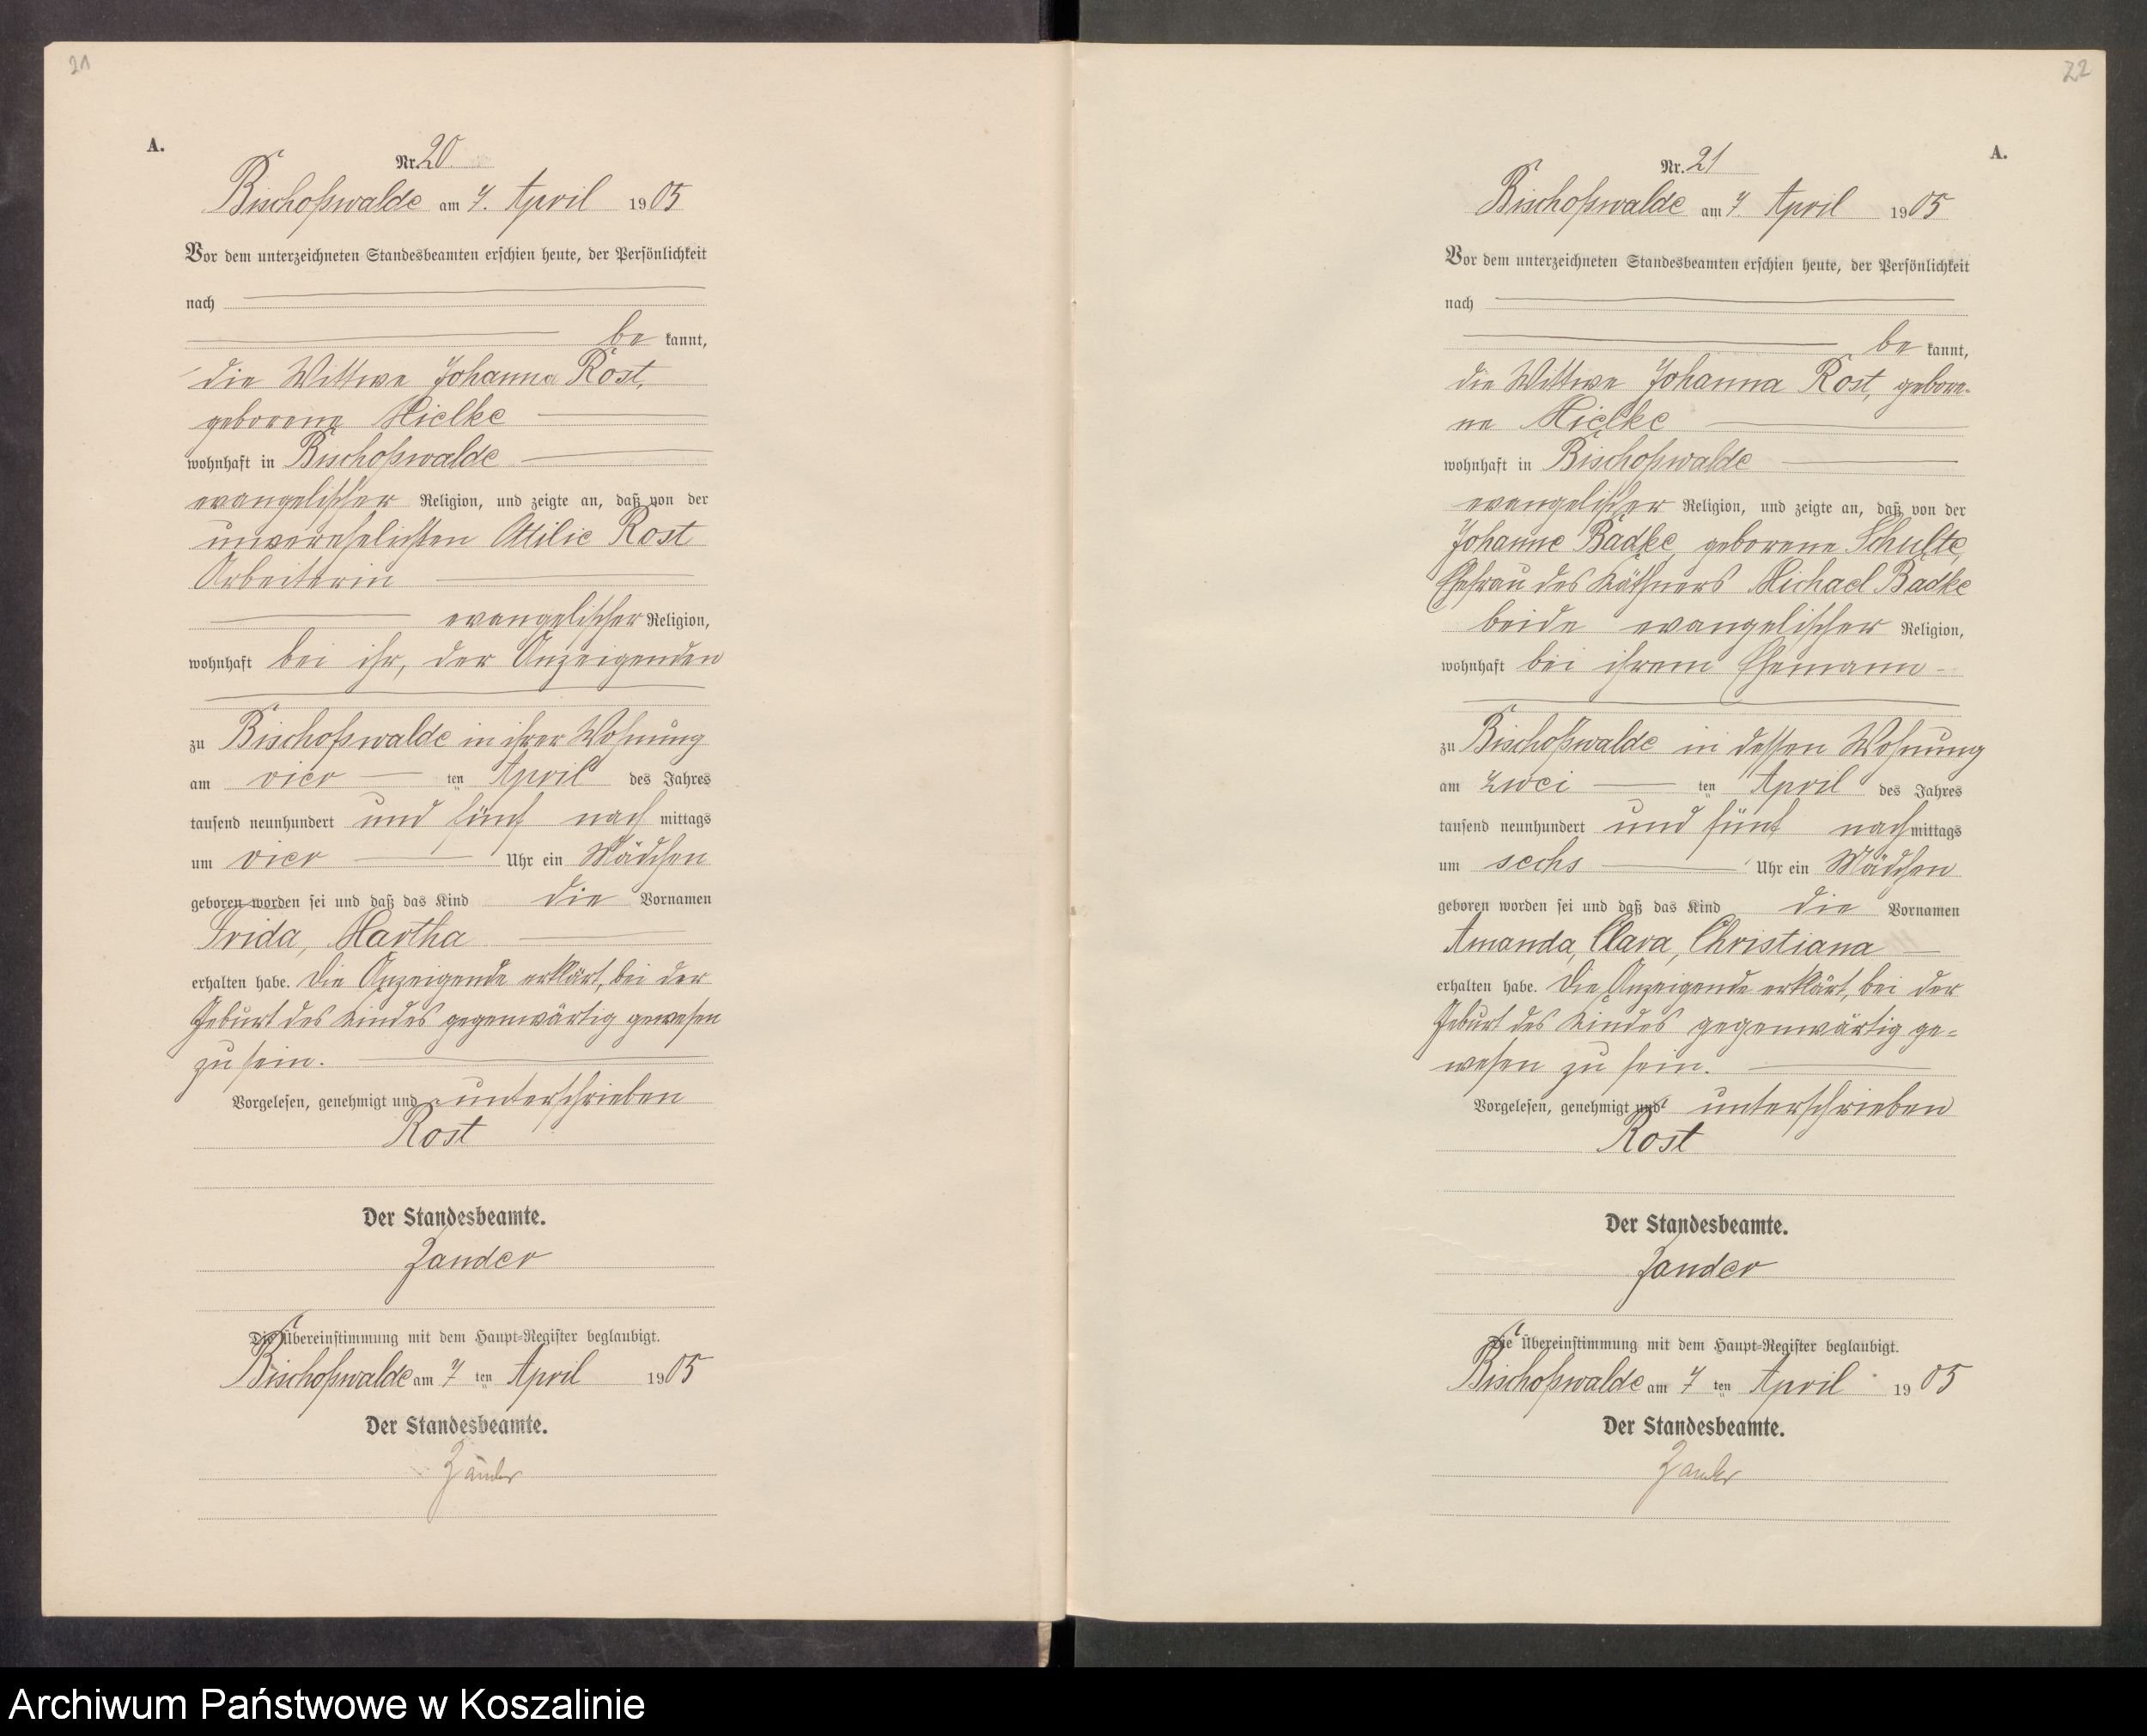 21
A.
Nr. 20
Bischofswalde am 7. April 1905
Vor dem unterzeichneten Standesbeamten erschien heute, der Persönlichkeit
nach
be kannt,
die Wittwe Johanna Rost,
geborene Mielke
wohnhaft in Bischofswalde
evangelischer Religion, und zeigte an, daß von der
unverehelichten Ottilie Rost
Arbeiterin
evangelischer Religion,
wohnhaft bei ihr, der Anzeigenden
zu Bischofswalde in ihrer Wohnung
am vier ten April des Jahres
tausend neunhundert und fünf nach mittags
um vier Uhr ein Mädchen
geboren worden sei und daß das Kind die Vornamen
Frida, Martha
erhalten habe. Die Anzeigende erklärt, bei der
Geburt des Kindes gegenwärtig gewesen
zu sein.
Vorgelesen, genehmigt und unterschrieben
Rost
Der Standesbeamte.
Zander
Die Übereinstimmung mit dem Haupt-Register beglaubigt.
Bischofswalde am 7 ten April 1905
Der Standesbeamte.
Zander
22
A.
Nr. 21
Bischofswalde am 7. April 1905
Vor dem unterzeichneten Standesbeamten erschien heute, der Persönlichkeit
nach
be kannt,
die Wittwe Johanna Rost, gebore-
ne Mielke
wohnhaft in Bischofswalde
evangelischer Religion, und zeigte an, daß von der
Johanne Badke, geborene Schulte,
Ehefrau des Käthners Michael Badke
beide evangelischer Religion,
wohnhaft bei ihrem Ehemann
zu Bischofswalde in dessen Wohnung
am zwei ten April des Jahres
tausend neunhundert und fünf nach mittags
um sechs Uhr ein Mädchen
geboren worden sei und daß das Kind die Vornamen
Amanda, Clara, Christiana
erhalten habe. Die Anzeigende erklärt, bei der
Geburt des Kindes gegenwärtig ge=
wesen zu sein.
Vorgelesen, genehmigt und unterschrieben
Rost
Der Standesbeamte.
Zander
Die Übereinstimmung mit dem Haupt-Register beglaubigt.
Bischofswalde am 7 ten April 1905
Der Standesbeamte.
Zander
Archiwum Państwowe w Koszalinie